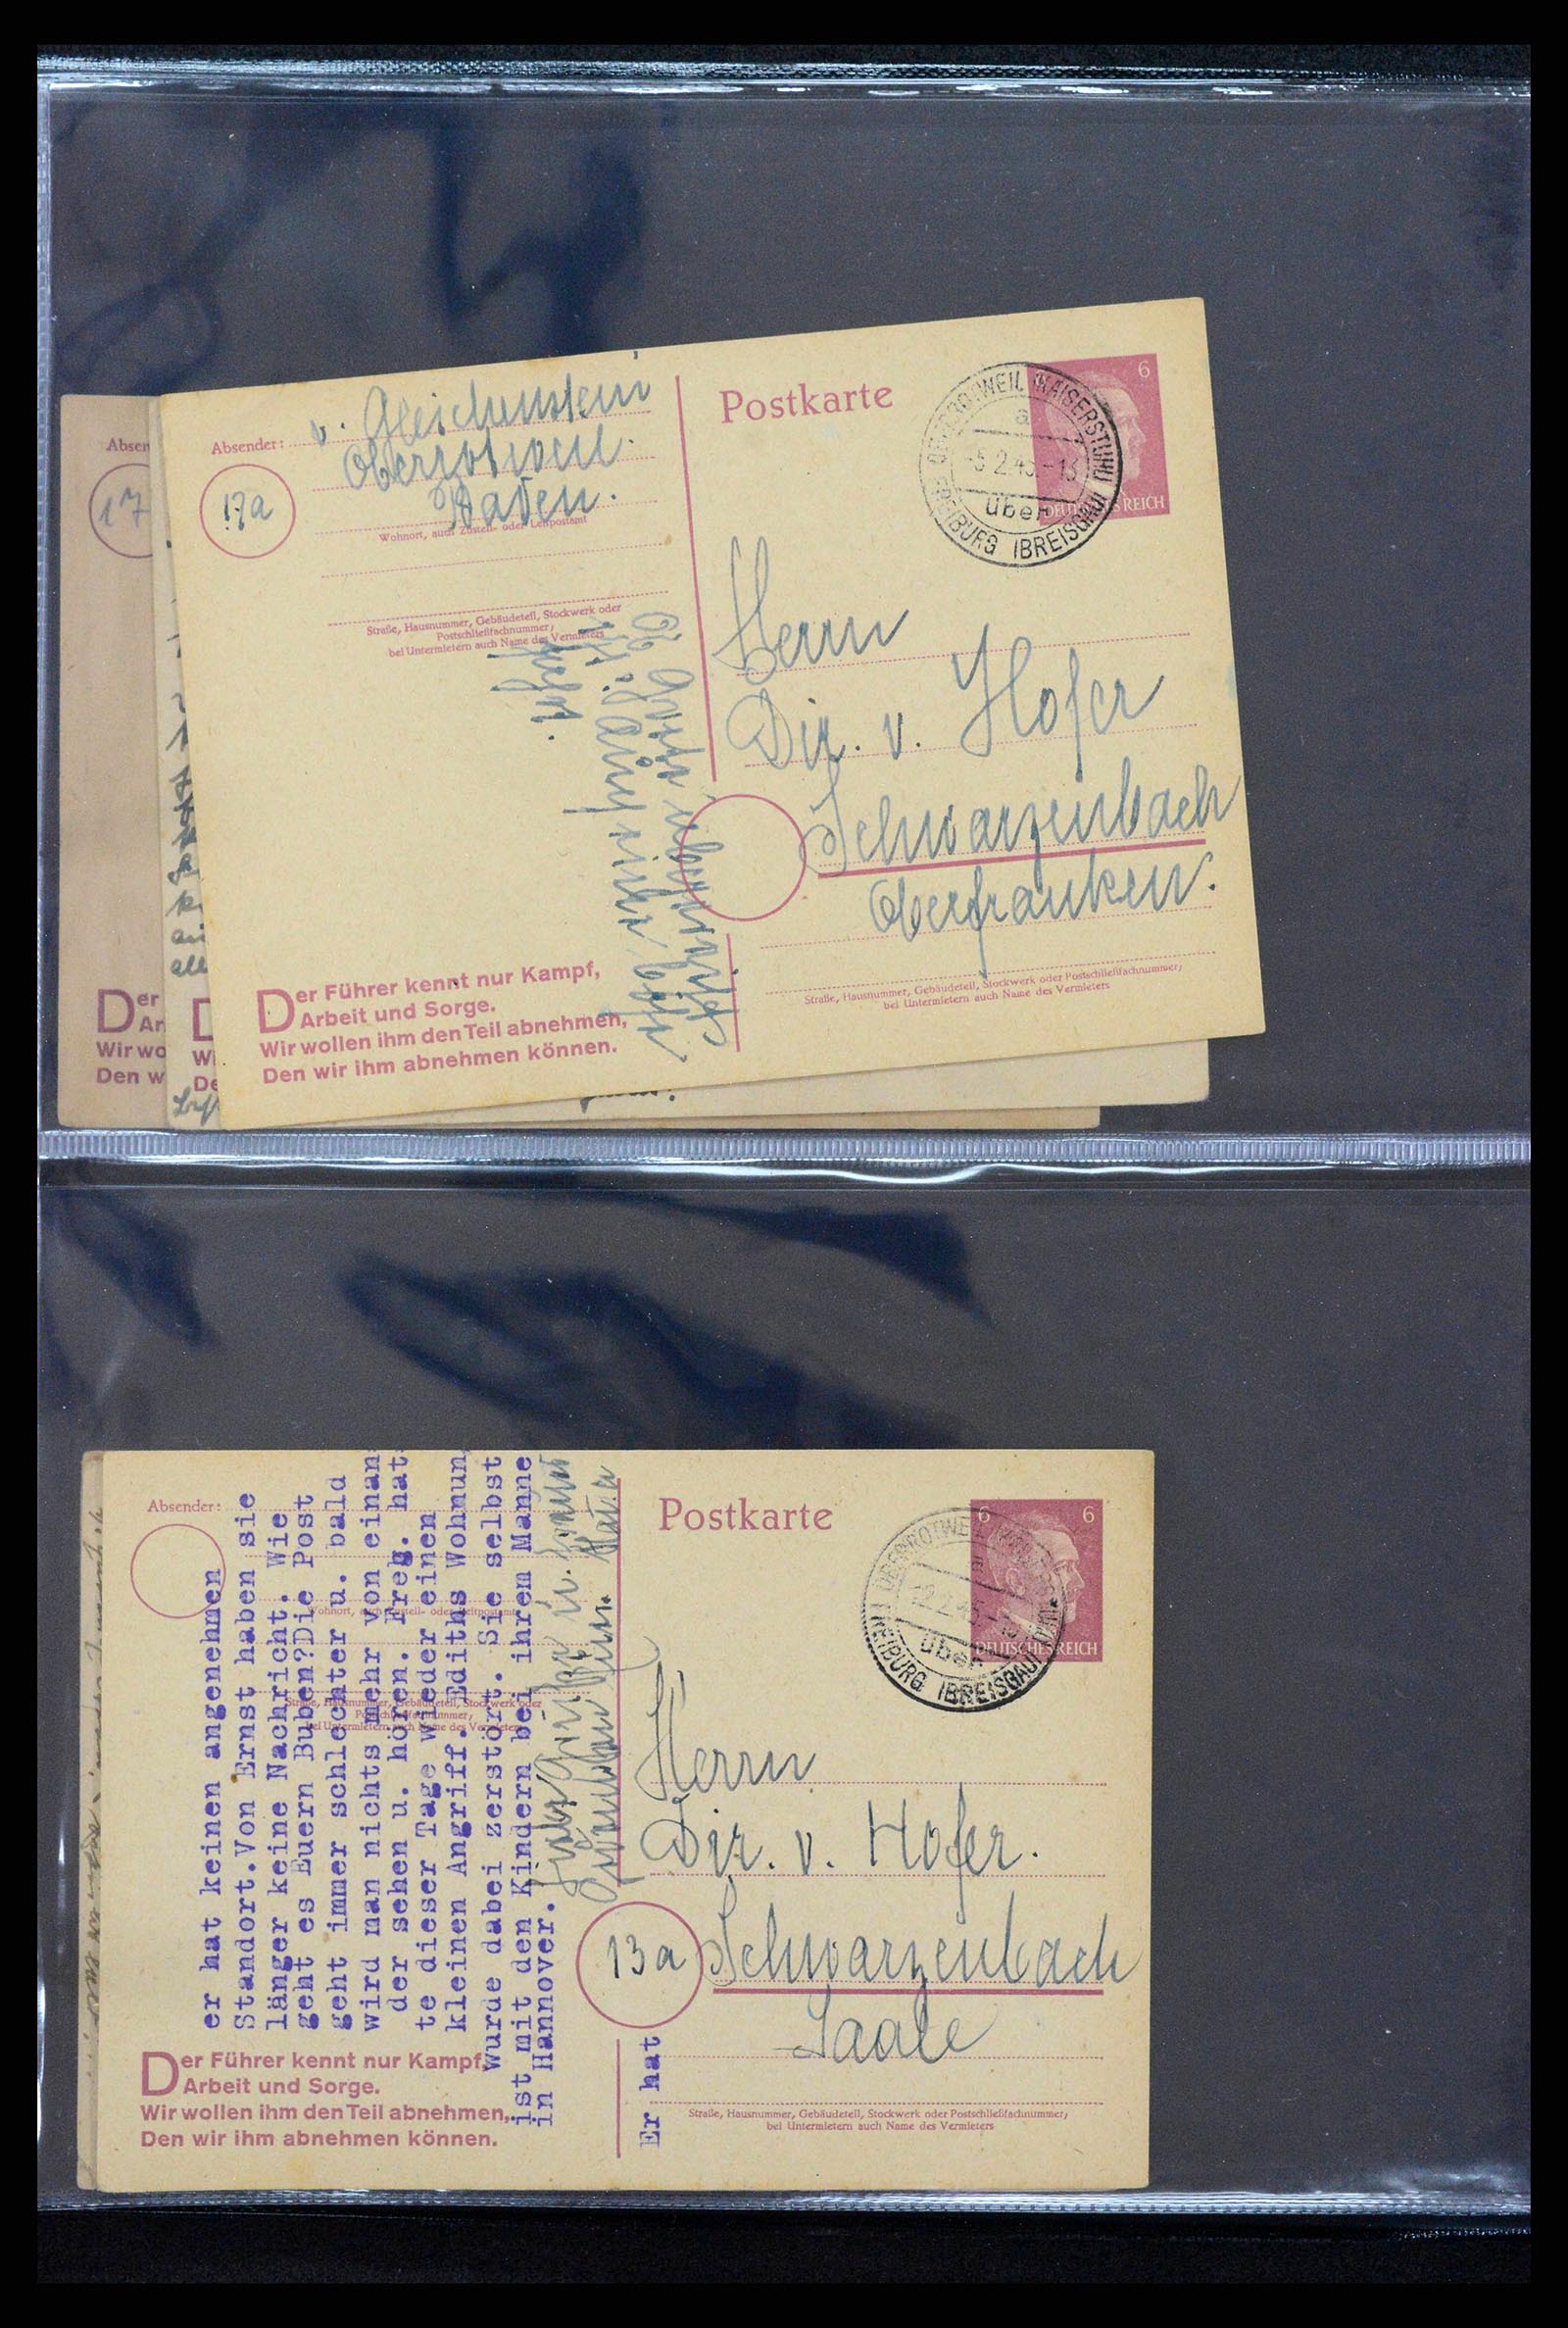 Absen
17
er
Ar
Wir wo
Den w
D
Wi
De
all
Absender:
v. Gleichenstein
Oberrotweil
Baden.
17a
Wohnort, auch Zustell- oder Leitpostamt
Straße, Hausnummer, Gebäudeteil, Stockwerk oder
Postschließfachnummer;
bei Untermietern auch Name des Vermieters
Postkarte
6
DEUTSCHES REICH
OBERROTWEIL (KAISERSTUHL)
a
-5.2.45-13
über
FREIBURG (BREISGAU)
Herrn
Dir. v. Hofer
Schwarzenbach
Oberfranken.
Straße, Hausnummer, Gebäudeteil, Stockwerk oder Postschließfachnummer;
bei Untermietern auch Name des Vermieters
Der Führer kennt nur Kampf,
Arbeit und Sorge.
Wir wollen ihm den Teil abnehmen,
Den wir ihm abnehmen können.
Absender:
Wohnort, auch Zustell- oder Leitpostamt
Straße, Hausnummer, Gebäudeteil, Stockwerk oder
Postschließfachnummer;
bei Untermietern auch Name des Vermieters
er hat keinen angenehmen
Standort.Von Ernst haben sie
länger keine Nachricht. Wie
geht es Euern Buben?Die Post
geht immer schlechter u. bald
wird man nichts mehr von einan
der sehen u. hören. Freg. hat
te dieser Tage wieder einen
kleinen Angriff. Ediths Wohnun
wurde dabei zerstört. Sie selbst
ist mit den Kindern bei ihrem Manne
in Hannover.
Er hat
Postkarte
6 6
DEUTSCHES REICH
OBERROTWEIL (KAISERSTUHL)
a
über
FREIBURG (BREISGAU)
Herrn
Dir. v. Hofer.
13a Schwarzenbach
Saale
Straße, Hausnummer, Gebäudeteil, Stockwerk oder Postschließfachnummer;
bei Untermietern auch Name des Vermieters
Der Führer kennt nur Kampf,
Arbeit und Sorge.
Wir wollen ihm den Teil abnehmen,
Den wir ihm abnehmen können.